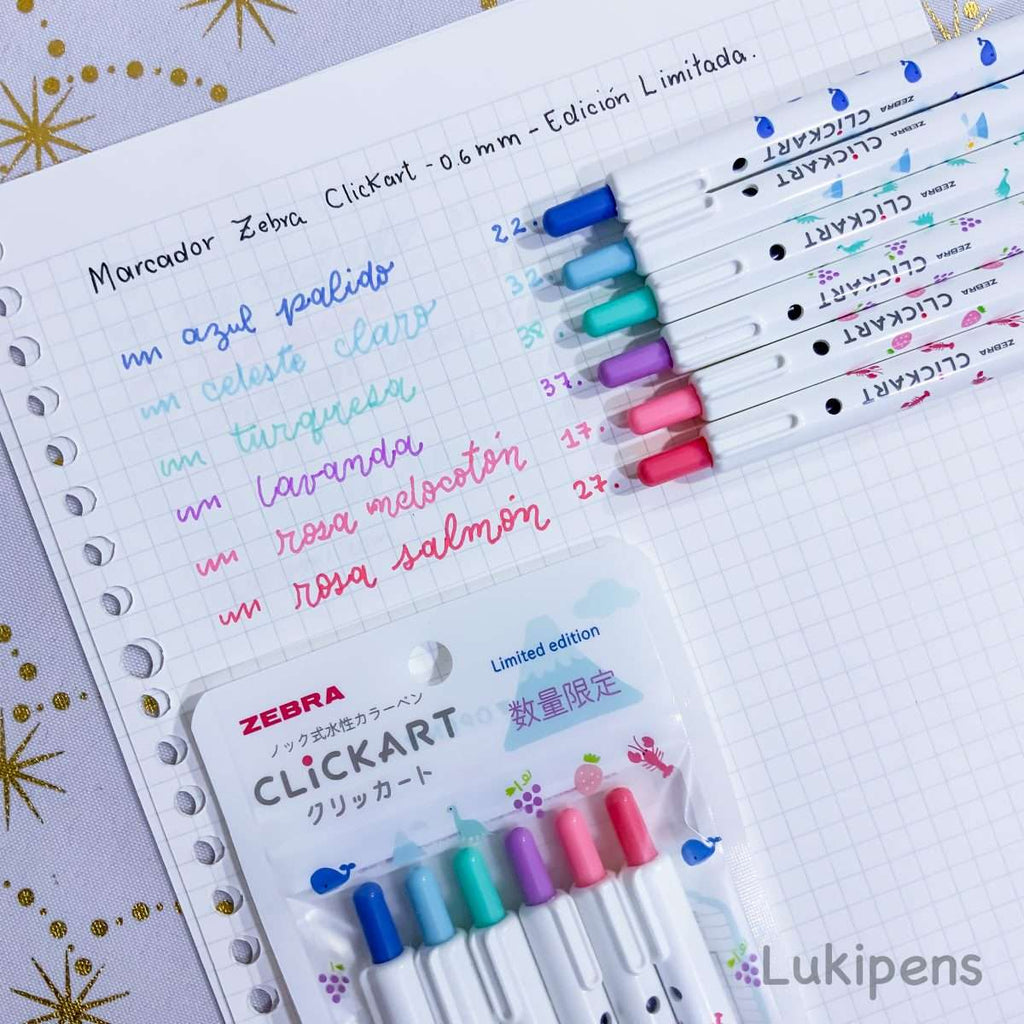 Marcador Zebra ClicKart - 0.6 mm - Edición Limitada.
un azul palido 22.
un celeste claro 32.
un turquesa 38.
un lavanda 37.
un rosa melocotón 17.
un rosa salmón 27.
CLiCKART ZEBRA
CLiCKART ZEBRA
CLiCKART ZEBRA
CLiCKART ZEBRA
CLiCKART ZEBRA
CLiCKART ZEBRA
Limited edition
数量限定
ZEBRA
ノック式水性カラーペン
CLiCKART
クリッカート
Lukipens